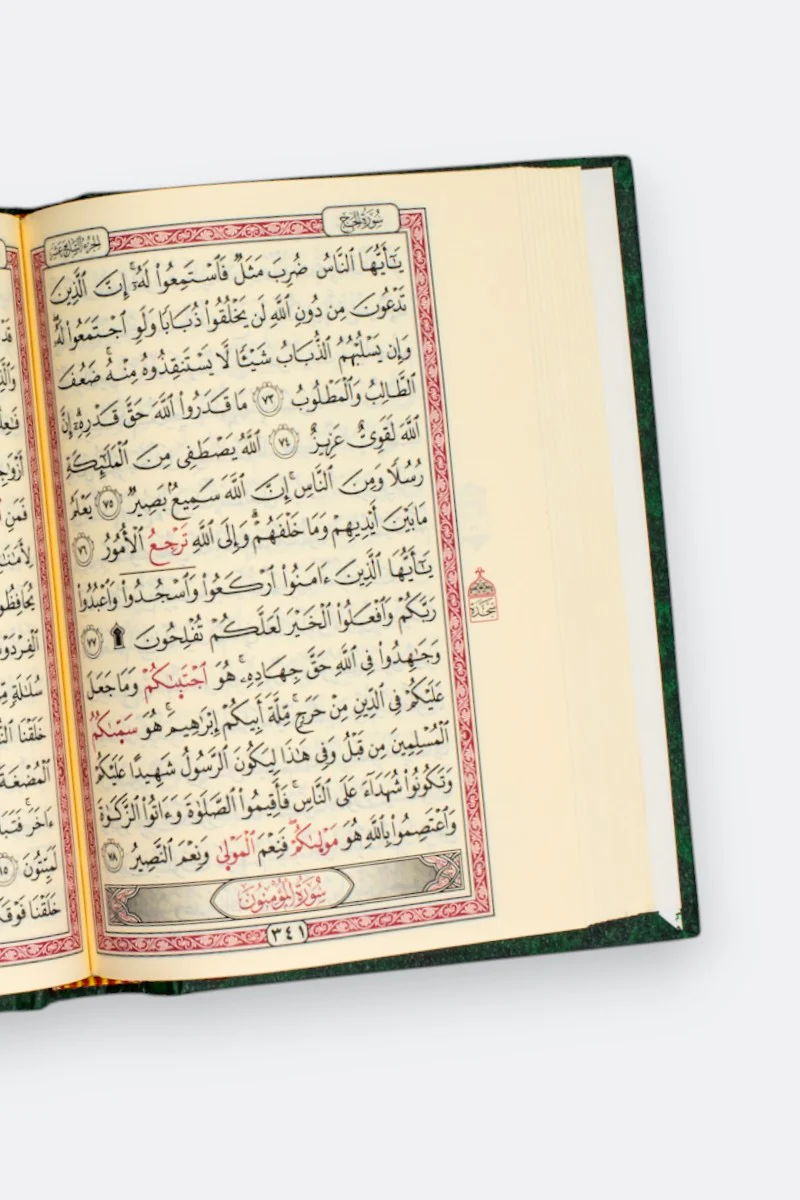 سُورَةُ الحَجِّ
الجُزْءُ السَّابِعَ عَشَرَ
يَٰٓأَيُّهَا ٱلنَّاسُ ضُرِبَ مَثَلٌ فَٱسْتَمِعُوا۟ لَهُۥٓ ۚ إِنَّ ٱلَّذِينَ
تَدْعُونَ مِن دُونِ ٱللَّهِ لَن يَخْلُقُوا۟ ذُبَابًا وَلَوِ ٱجْتَمَعُوا۟ لَهُۥ ۖ
وَإِن يَسْلُبْهُمُ ٱلذُّبَابُ شَيْـًٔا لَّا يَسْتَنقِذُوهُ مِنْهُ ۚ ضَعُفَ
ٱلطَّالِبُ وَٱلْمَطْلُوبُ ٧٣ مَا قَدَرُوا۟ ٱللَّهَ حَقَّ قَدْرِهِۦٓ ۗ إِنَّ
ٱللَّهَ لَقَوِىٌّ عَزِيزٌ ٧٤ ٱللَّهُ يَصْطَفِى مِنَ ٱلْمَلَٰٓئِكَةِ
رُسُلًا وَمِنَ ٱلنَّاسِ ۚ إِنَّ ٱللَّهَ سَمِيعٌۢ بَصِيرٌ ٧٥ يَعْلَمُ
مَا بَيْنَ أَيْدِيهِمْ وَمَا خَلْفَهُمْ ۗ وَإِلَى ٱللَّهِ تَرْجِعُ ٱلْأُمُورُ ٧٦
يَٰٓأَيُّهَا ٱلَّذِينَ ءَامَنُوا۟ ٱرْكَعُوا۟ وَٱسْجُدُوا۟ وَٱعْبُدُوا۟
رَبَّكُمْ وَٱفْعَلُوا۟ ٱلْخَيْرَ لَعَلَّكُمْ تُفْلِحُونَ ۩ ٧٧
وَجَٰهِدُوا۟ فِى ٱللَّهِ حَقَّ جِهَادِهِۦ ۚ هُوَ ٱجْتَبَىٰكُمْ وَمَا جَعَلَ
عَلَيْكُمْ فِى ٱلدِّينِ مِنْ حَرَجٍ ۚ مِّلَّةَ أَبِيكُمْ إِبْرَٰهِيمَ ۚ هُوَ سَمَّىٰكُمُ
ٱلْمُسْلِمِينَ مِن قَبْلُ وَفِى هَٰذَا لِيَكُونَ ٱلرَّسُولُ شَهِيدًا عَلَيْكُمْ
وَتَكُونُوا۟ شُهَدَآءَ عَلَى ٱلنَّاسِ ۚ فَأَقِيمُوا۟ ٱلصَّلَوٰةَ وَءَاتُوا۟ ٱلزَّكَوٰةَ
وَٱعْتَصِمُوا۟ بِٱللَّهِ هُوَ مَوْلَىٰكُمْ ۖ فَنِعْمَ ٱلْمَوْلَىٰ وَنِعْمَ ٱلنَّصِيرُ ٧٨
سُورَةُ المُؤْمِنُونَ
٣٤١
سَجْدَة
قَدْ
فَمَنِ
سُلَٰلَةٍ
خَلَقْنَا
ٱلْمُضْغَةَ
ءَاخَرَ ۚ
لَمَيِّتُونَ ١٥
خَلَقْنَا